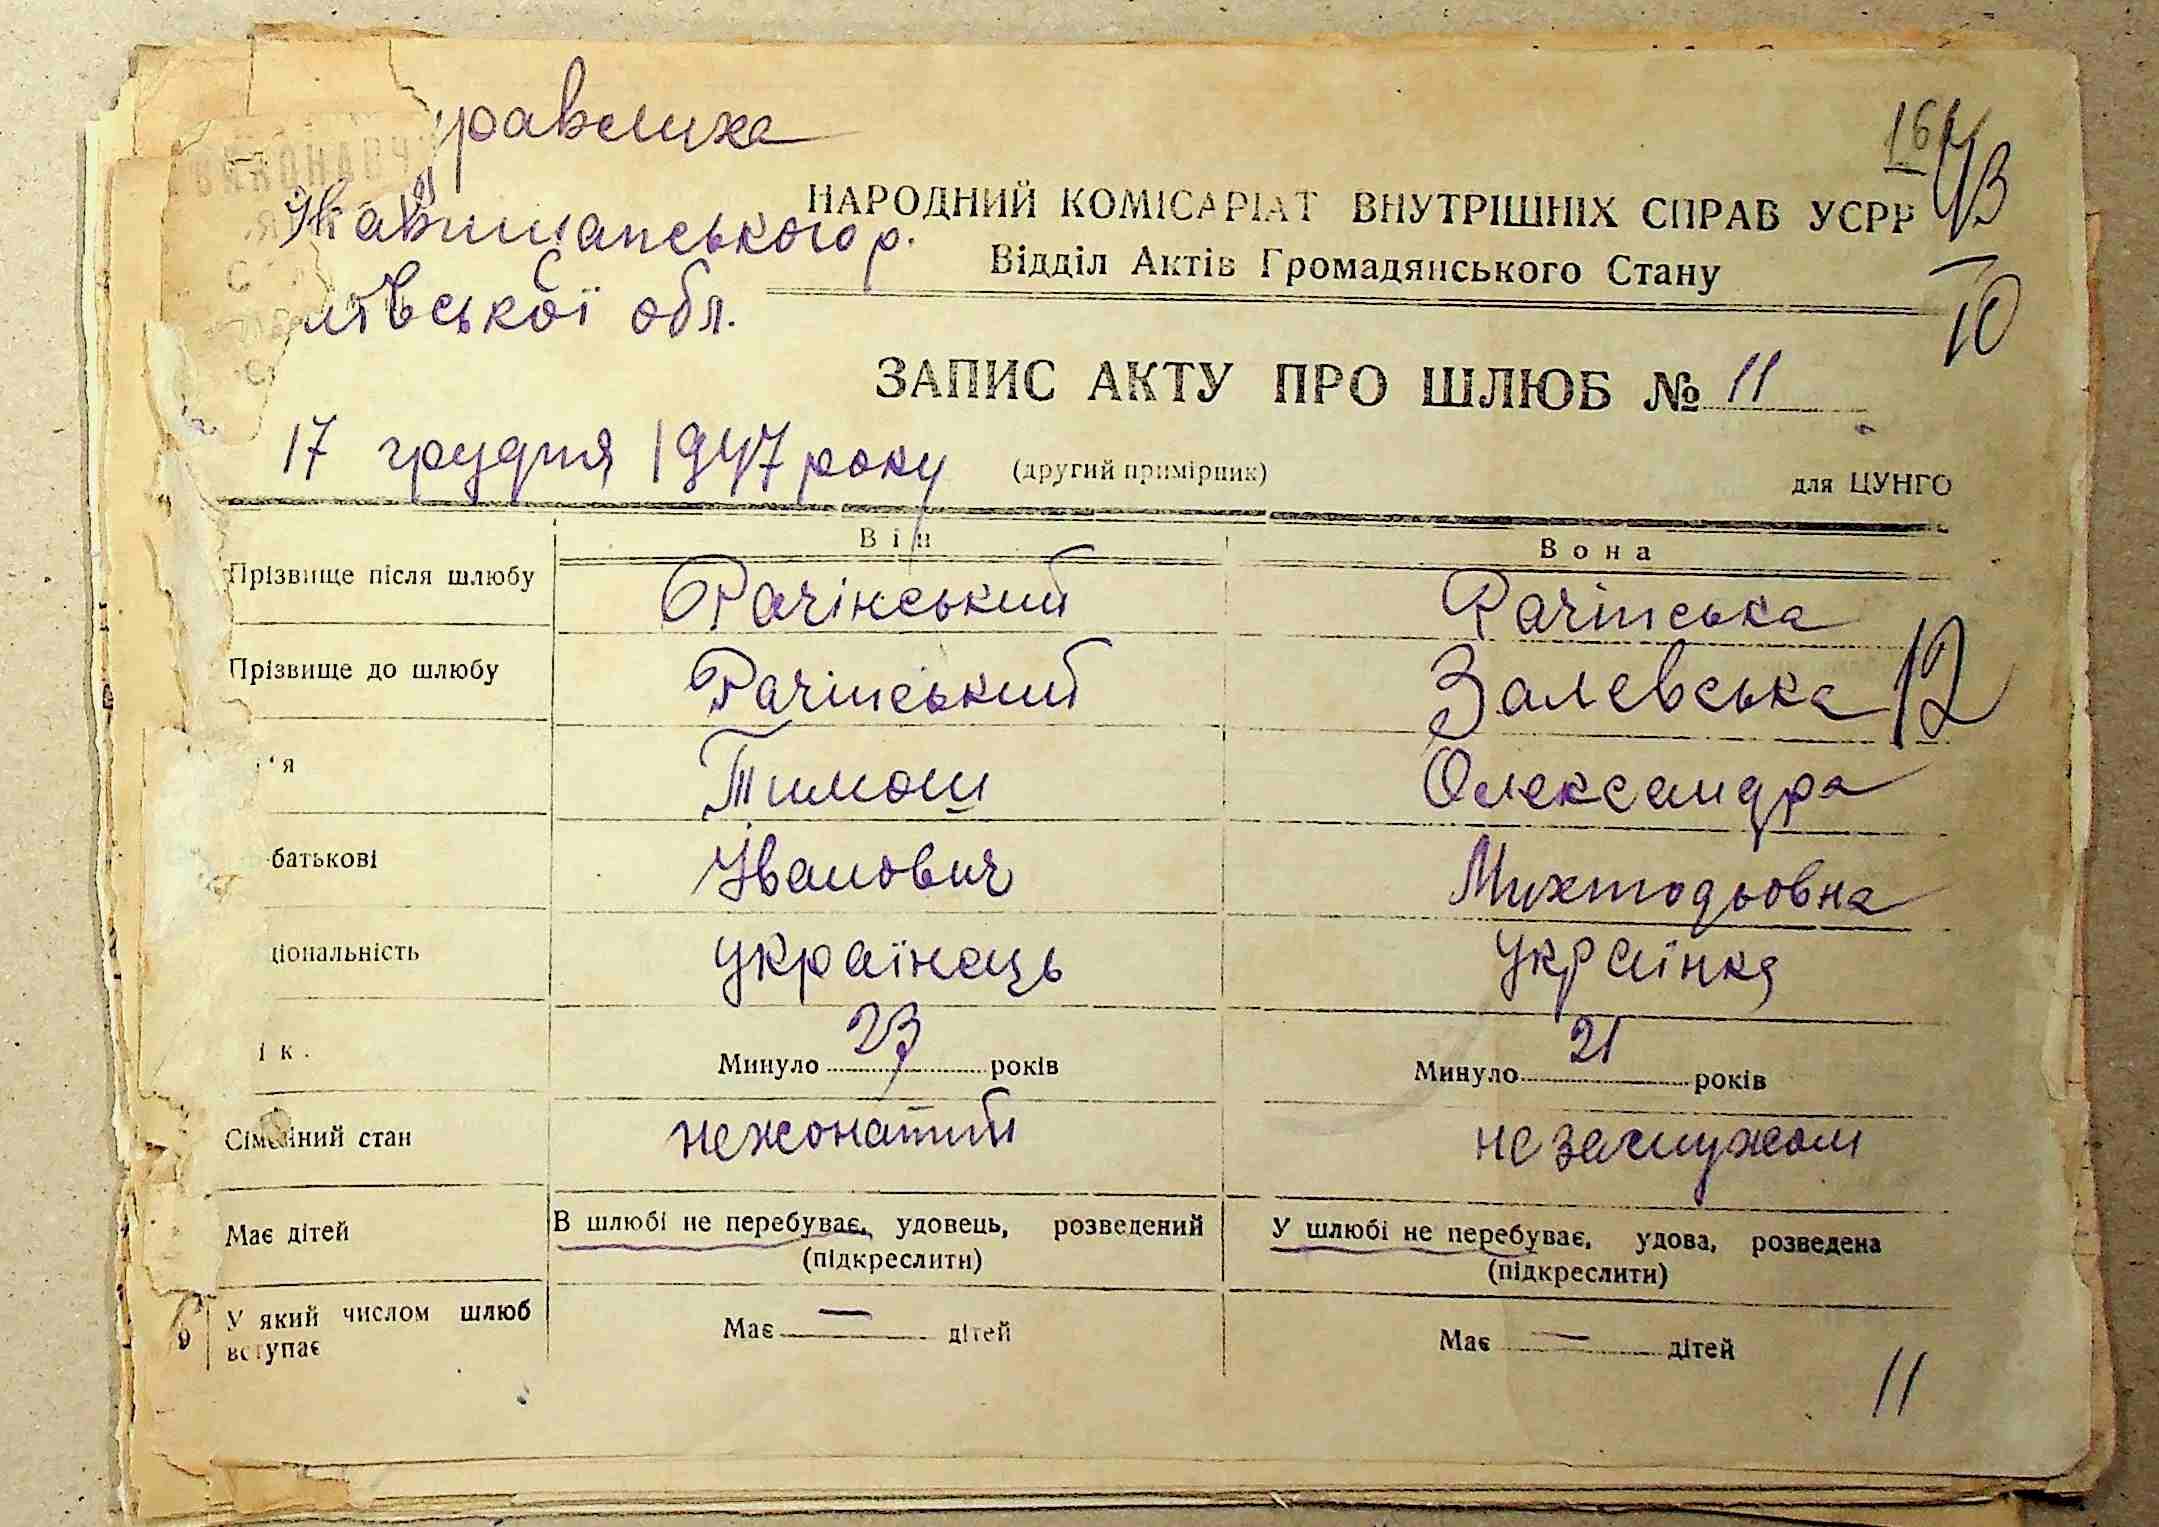 уравлиха
16 43
НАРОДНИЙ КОМІСАРІАТ ВНУТРІШНІХ СПРАВ УСРР
р.
Відділ Актів Громадянського Стану
обл.
10
ЗАПИС АКТУ ПРО ШЛЮБ № 11
17 грудня 1947 року (другий примірник) для ЦУНГО
Він Вона
Прізвище після шлюбу Рачінський Рачінська
Прізвище до шлюбу Рачінський Залєвська 12
'я Тимош Олександра
батькові Іванович
ціональність українець українка
ік. Минуло 23 років Минуло 21 років
Сімейний стан нежонатий незамужом
Має дітей В шлюбі не перебуває, удовець, розведений У шлюбі не перебуває, удова, розведена
(підкреслити) (підкреслити)
У який числом шлюб вступає Має — дітей Має — дітей
11